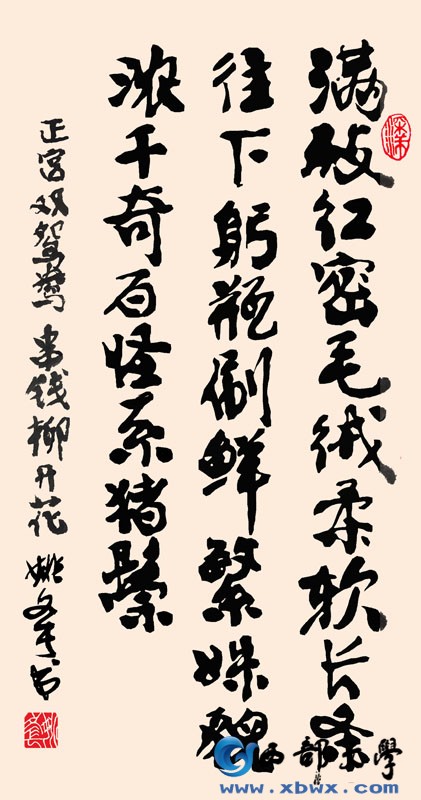 满枝红密毛绒柔软长条
往下躬瓶刷鲜繁姝
浓千奇百怪系猪鬃
正宫双鸳鸯 串钱柳开花 姚文
西部 學
www.xbwx.com